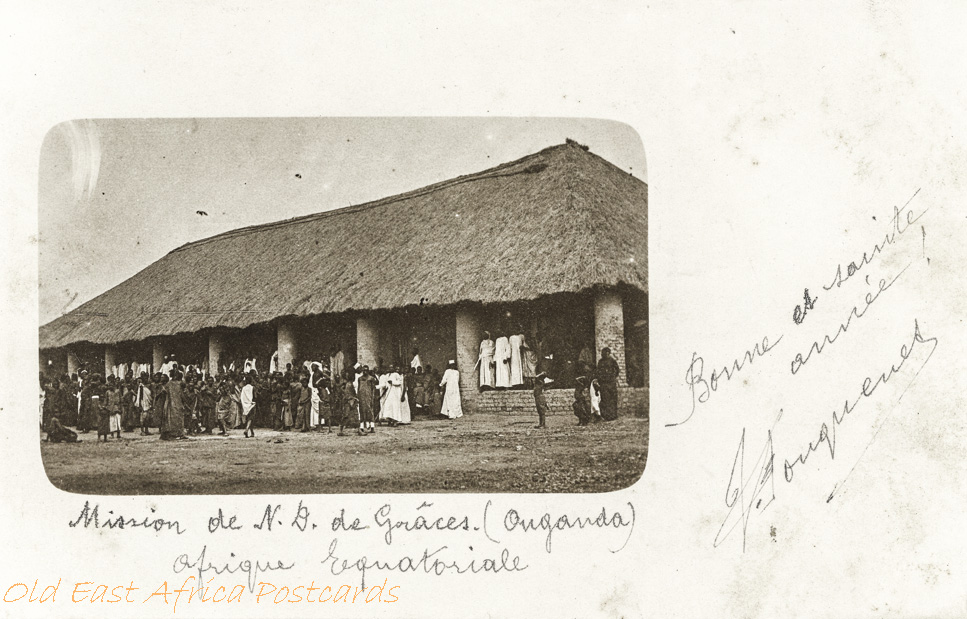 Bonne et sainte
année !
Fouquenet
Mission de N. D. de Grâces. (Ouganda)
Afrique Equatoriale
Old East Africa Postcards